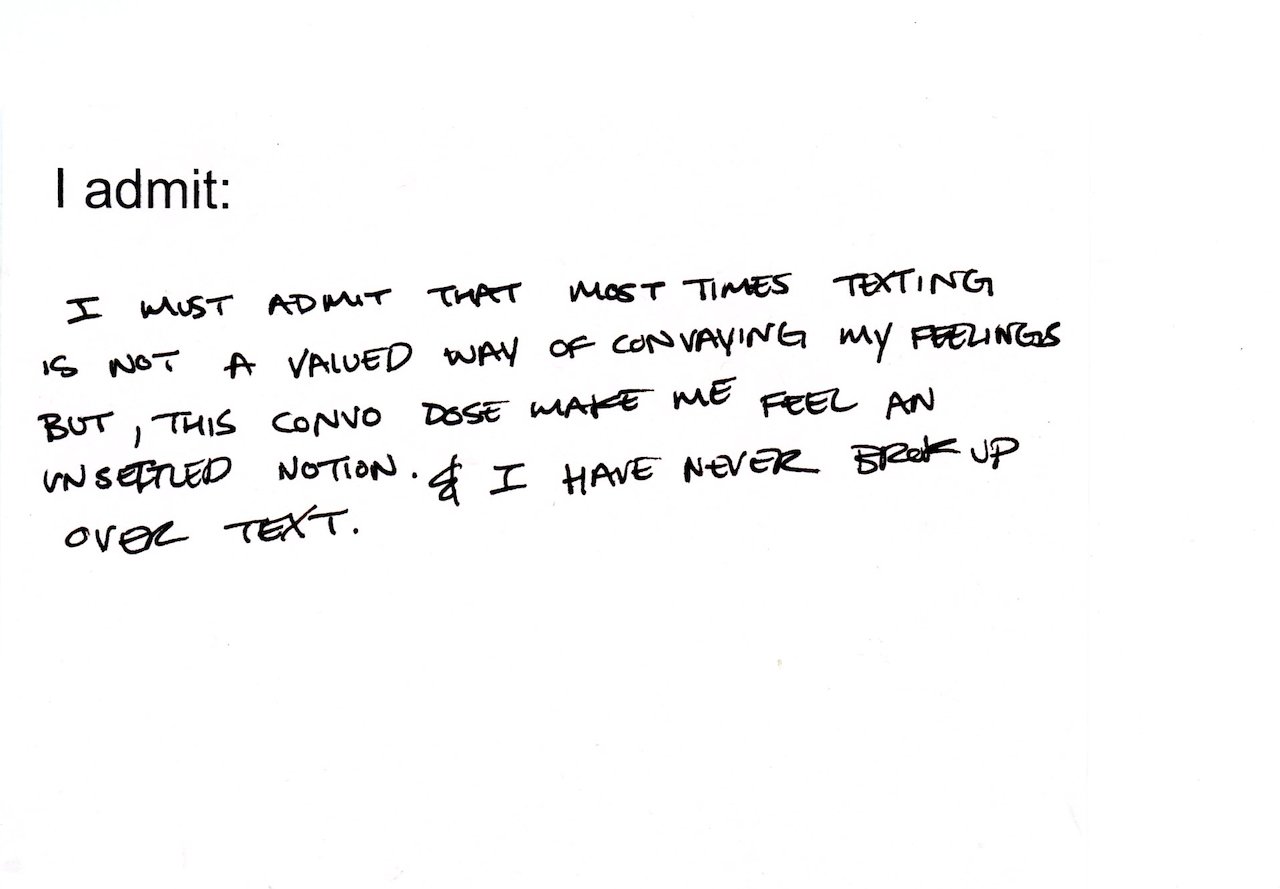 I admit:
I MUST ADMIT THAT MOST TIMES TEXTING
IS NOT A VALUED WAY OF CONVAYING MY FEELINGS
BUT, THIS CONVO DOSE MAKE ME FEEL AN
UNSETTLED NOTION. & I HAVE NEVER BROK UP
OVER TEXT.